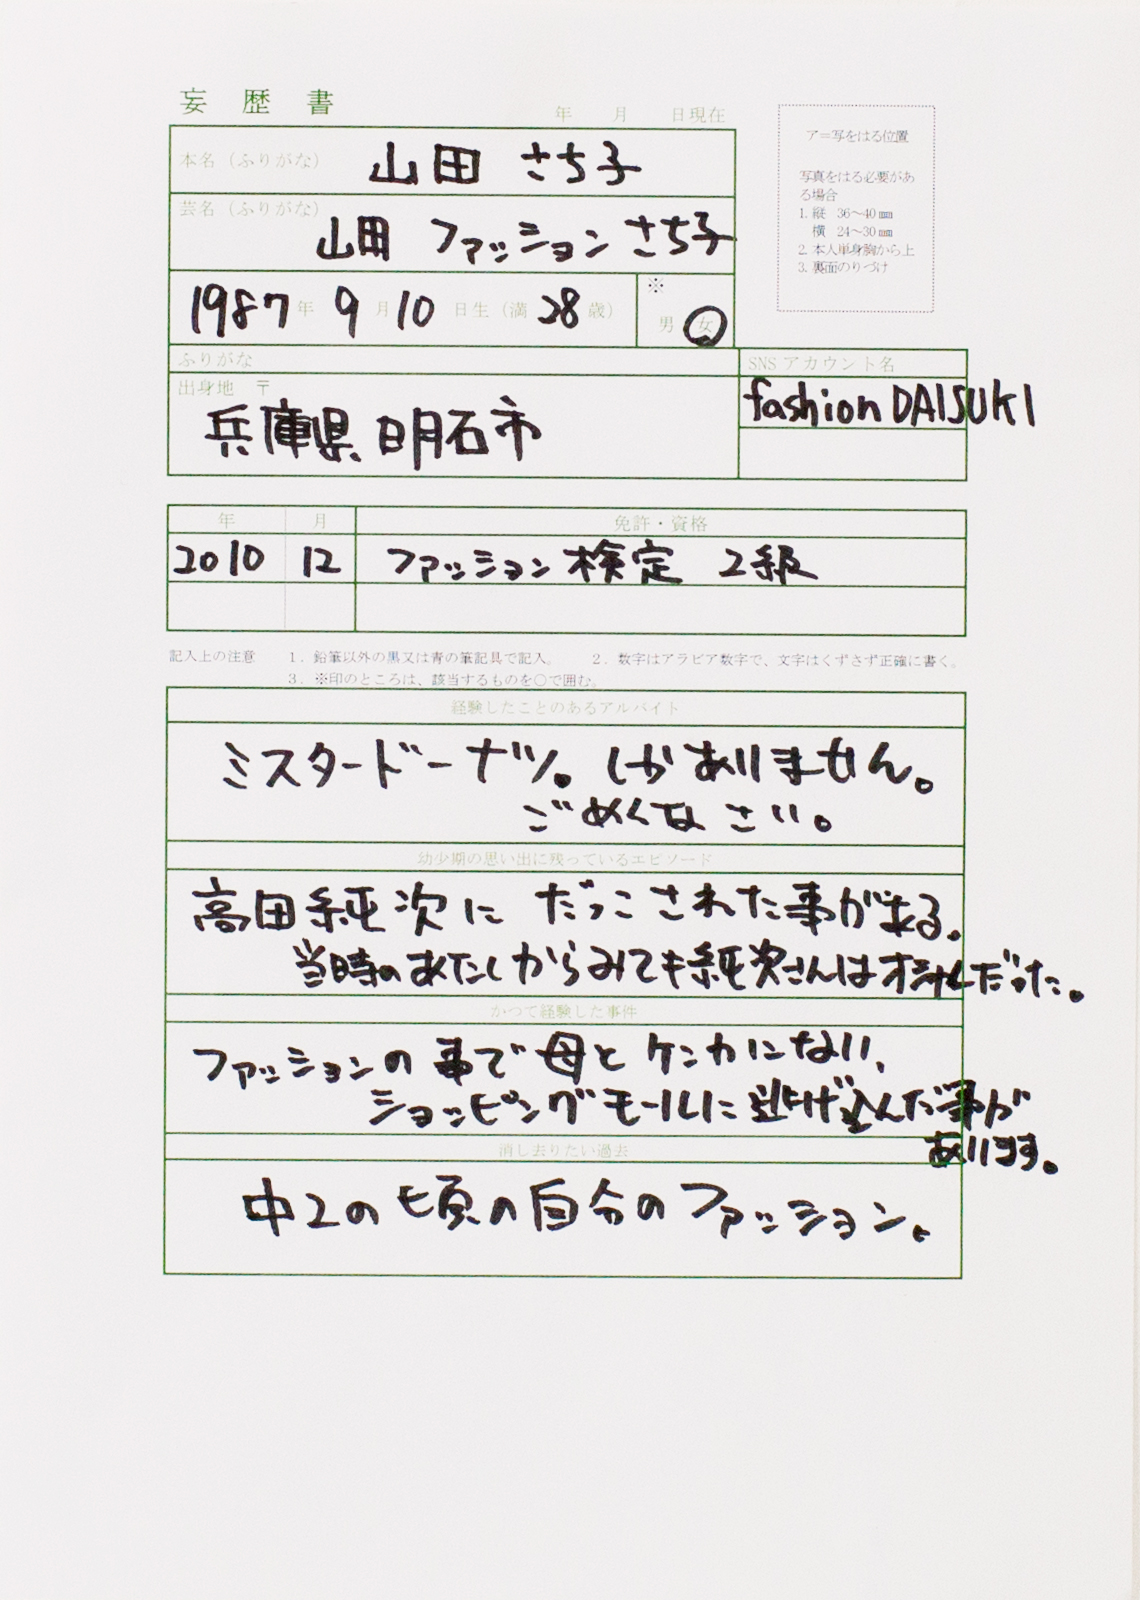 妄歴書
年 月 日現在
本名（ふりがな） 山田 さち子
芸名（ふりがな） 山田 ファッション さち子
1987年 9月10日生（満28歳） ※ 男 女
ア＝写をはる位置
写真をはる必要があ
る場合
1. 縦 36〜40㎜
横 24〜30㎜
2. 本人単身胸から上
3. 裏面のりづけ
ふりがな
出身地 〒
兵庫県 明石市
SNS アカウント名
fashion DAISUKI
年 月 免許・資格
2010 12 ファッション検定 2級
記入上の注意 1. 鉛筆以外の黒又は青の筆記具で記入。 2. 数字はアラビア数字で、文字はくずさず正確に書く。
3. ※印のところは、該当するものを○で囲む。
経験したことのあるアルバイト
ミスタードーナツ。しかありません。
ごめんなさい。
幼少期の思い出に残っているエピソード
高田純次に だっこされた事がある。
当時のあたしからみても純次さんはオシャレだった。
かつて経験した事件
ファッションの事で母とケンカになり、
ショッピングモールに逃げ込んだ事が
あります。
消し去りたい過去
中2の頃の自分のファッション。